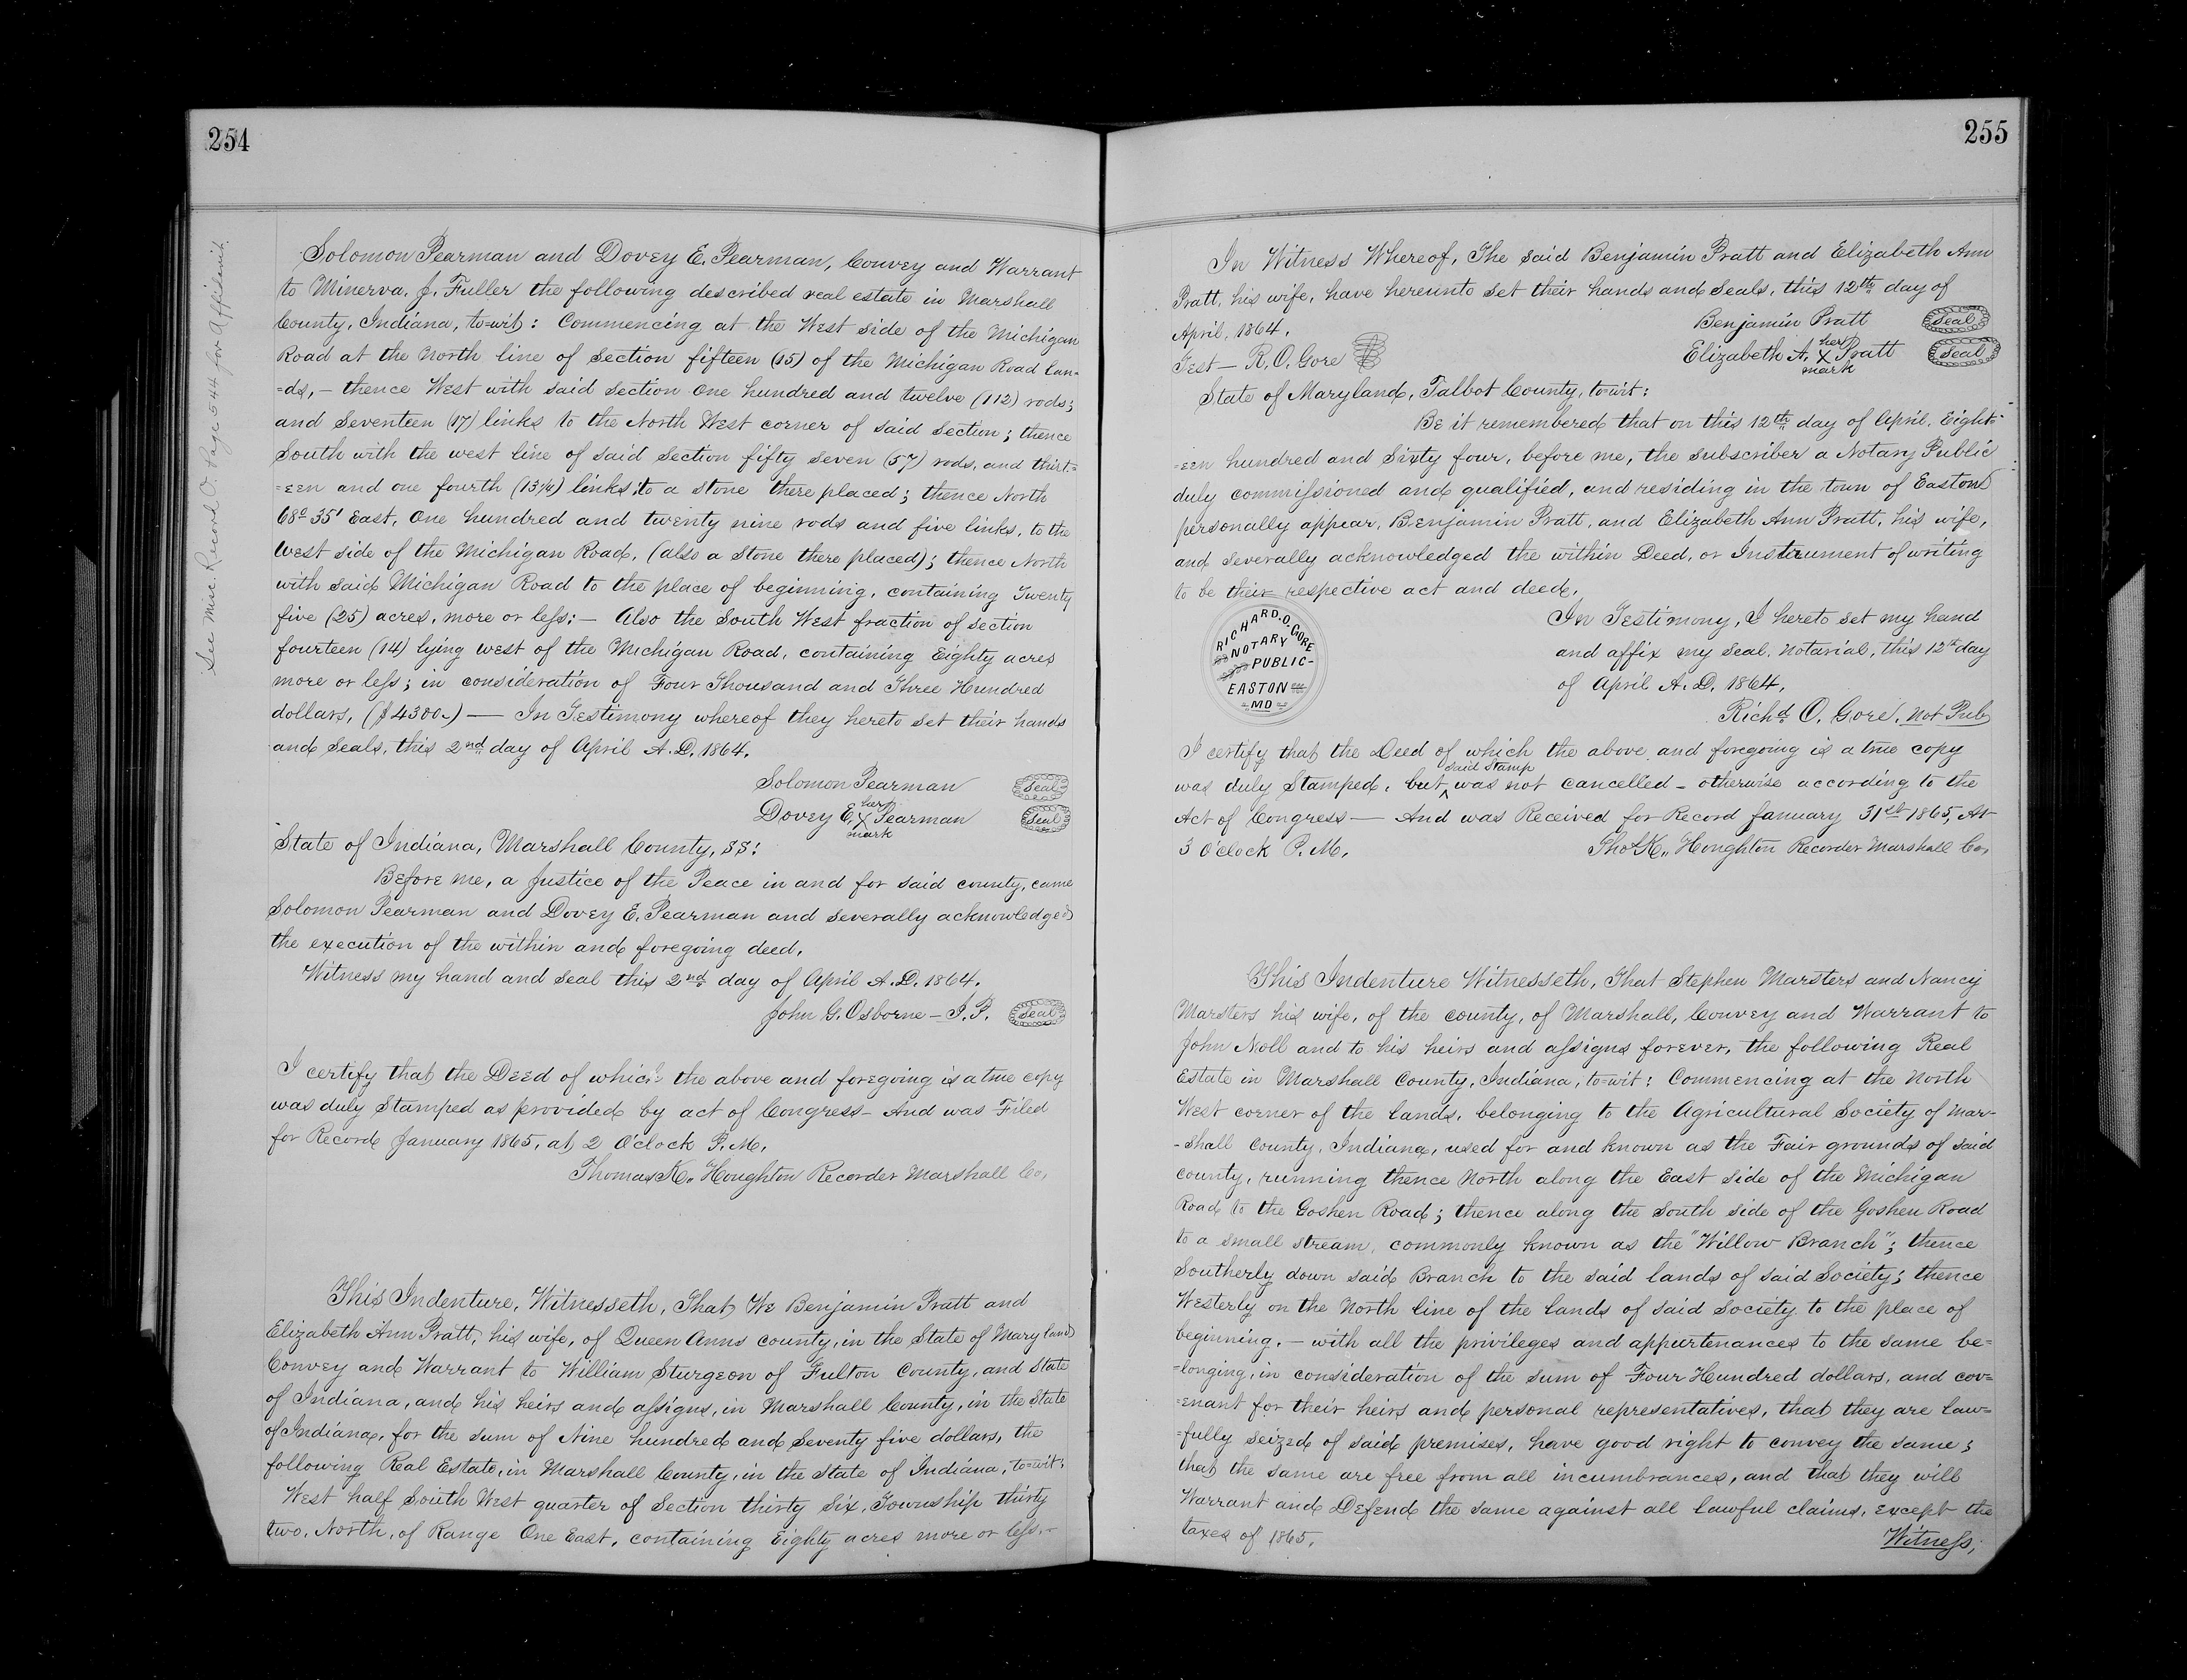 254
See Misc. Record O. Page 544 for Affidavit.
Solomon Pearman and Dovey E. Pearman, Convey and Warrant
to Minerva. J. Fuller the following described real estate in Marshall
County, Indiana, to=wit: Commencing at the West side of the Michigan
Road at the North line of Section fifteen (15) of the Michigan Road Lan=
=ds, — thence West with said Section One hundred and twelve (112) rods;
and Seventeen (17) links to the North West corner of said Section; thence
South with the west line of said Section fifty seven (57) rods, and thirt=
=een and one fourth (13¼) links; to a stone there placed; thence North
68° 35' East, One hundred and twenty nine rods and five links, to the
West side of the Michigan Road, (also a Stone there placed); thence North
with said Michigan Road to the place of beginning, containing Twenty
five (25) acres, more or less: — Also the South West fraction of Section
fourteen (14) lying west of the Michigan Road, containing Eighty acres
more or less; in consideration of Four Thousand and Three Hundred
dollars, ($4300.) — In Testimony whereof they hereto set their hands
and Seals, this 2nd day of April A.D. 1864.
Solomon Pearman Seal
Dovey E. her X mark Pearman Seal
State of Indiana, Marshall County, SS:
Before me, a Justice of the Peace in and for said county, came
Solomon Pearman and Dovey E. Pearman and severally acknowledged
the execution of the within and foregoing deed.
Witness my hand and Seal this 2nd day of April A.D. 1864.
John G. Osborne — J.P. Seal
I certify that the Deed of which the above and foregoing is a true copy
was duly Stamped as provided by act of Congress — And was Filed
for Record January 1865, at 2 O'clock P.M.
Thomas K. Houghton Recorder Marshall Co,
This Indenture, Witnesseth, That We Benjamin Pratt and
Elizabeth Ann Pratt, his wife, of Queen Anns county, in the State of Maryland
Convey and Warrant to William Sturgeon of Fulton County, and State
of Indiana, and his heirs and assigns, in Marshall County, in the State
of Indiana, for the sum of Nine hundred and Seventy five dollars, the
following Real Estate, in Marshall County, in the State of Indiana, to=wit:
West half South West quarter of Section thirty Six, Township thirty
two, North, of Range One East, containing Eighty acres more or less. —
255
In Witness Whereof, The said Benjamin Pratt and Elizabeth Ann
Pratt, his wife, have hereunto set their hands and Seals, this 12th day of
April, 1864.
Benjamin Pratt Seal
Test — R. O. Gore
Elizabeth A. her X mark Pratt Seal
State of Maryland, Talbot County, to=wit:
Be it remembered that on this 12th day of April, Eight=
=een hundred and Sixty four, before me, the subscriber a Notary Public
duly commissioned and qualified, and residing in the town of Easton
personally appear, Benjamin Pratt, and Elizabeth Ann Pratt, his wife,
and severally acknowledged the within Deed, or Instrument of writing
to be their respective act and deed.
RICHARD. O. GORE
NOTARY
PUBLIC-
EASTON
MD
In Testimony, I hereto set my hand
and affix my Seal, Notarial, this 12th day
of April A.D. 1864.
Richd O. Gore, Not Pub
I certify that the Deed of which the above and foregoing is a true copy
was duly Stamped, but said Stamp was not cancelled — otherwise according to the
Act of Congress — And was Received for Record January 31st 1865, At
3 O'clock P.M.
Tho K. Houghton Recorder Marshall Co,
This Indenture Witnesseth, That Stephen Marsters and Nancy
Marsters his wife, of the county, of Marshall, Convey and Warrant to
John Noll and to his heirs and assigns forever, the following Real
Estate in Marshall County, Indiana, to=wit: Commencing at the North
West corner of the lands, belonging to the Agricultural Society of Mar-
-shall County, Indiana, used for and known as the Fair grounds of said
county, running thence North along the East side of the Michigan
Road to the Goshen Road; thence along the South side of the Goshen Road
to a small stream, commonly known as the "Willow Branch"; thence
Southerly down said Branch to the said lands of said Society; thence
Westerly on the North line of the lands of said Society to the place of
beginning. — with all the privileges and appurtenances to the same be=
=longing, in consideration of the sum of Four Hundred dollars, and cov=
=enant for their heirs and personal representatives, that they are law=
=fully seized of said premises, have good right to convey the same;
that the same are free from all incumbrances, and that they will
Warrant and Defend the same against all lawful claims, except the
taxes of 1865.
Witness;